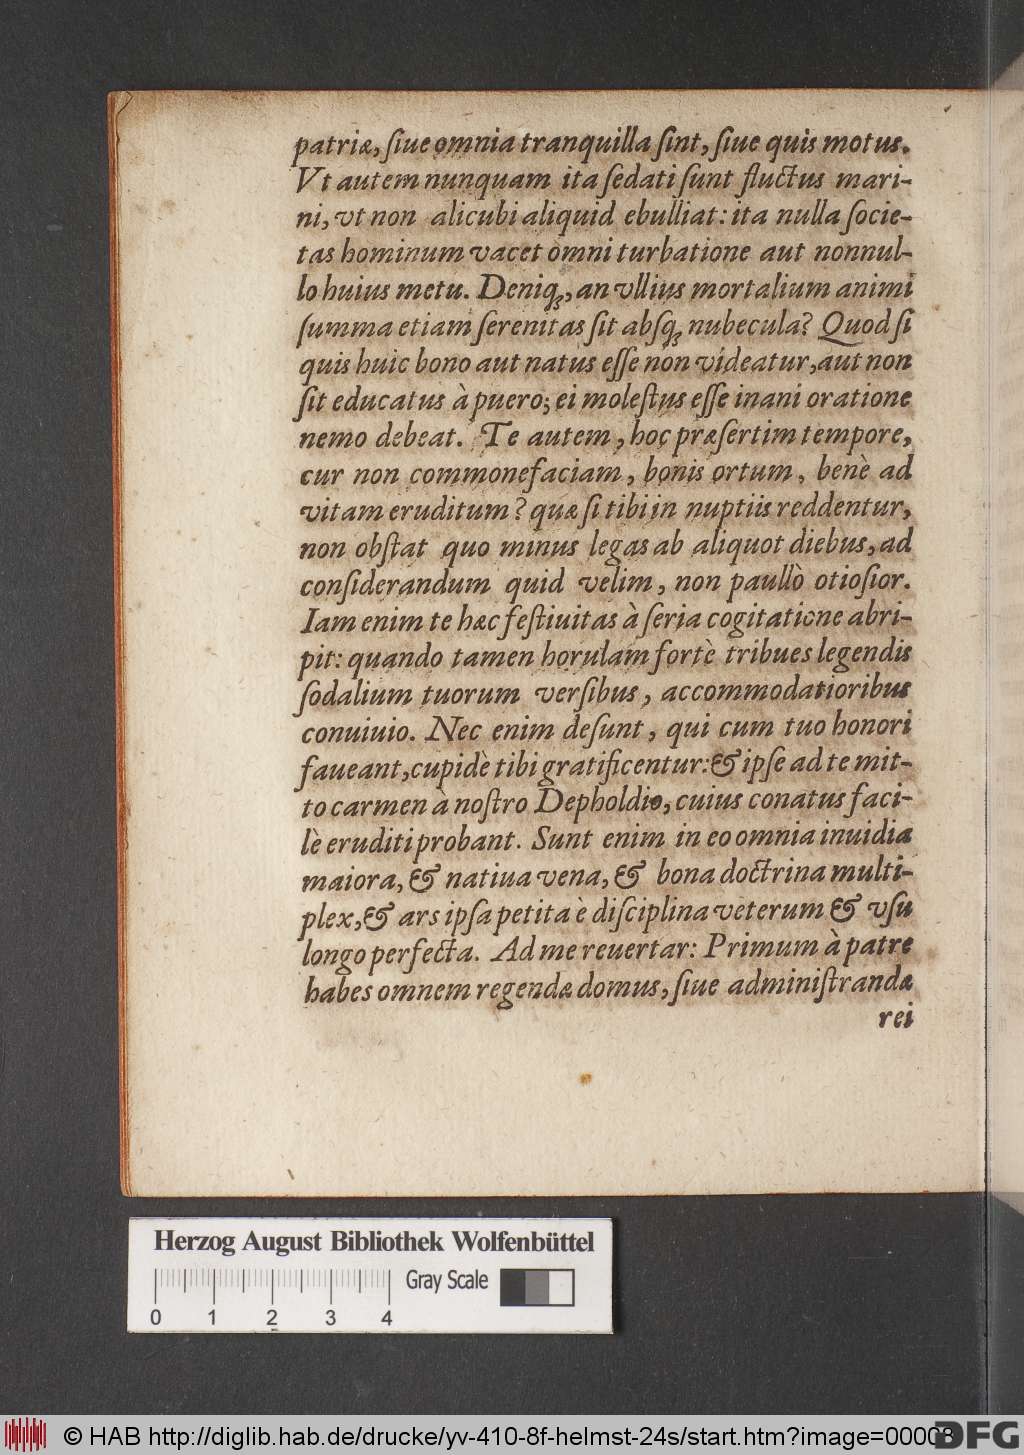 patriæ, ſiue omnia tranquilla ſint, ſiue quis motus.
Vt autem nunquam ita ſedati ſunt fluctus mari-
ni, vt non alicubi aliquid ebulliat: ita nulla ſocie-
tas hominum vacet omni turbatione aut nonnul-
lo huius metu. Deniq́;, an vllius mortalium animi
ſumma etiam ſerenitas ſit abſq́; nubecula? Quod ſi
quis huic bono aut natus eſſe non videatur, aut non
ſit educatus à puero; ei moleſtus eſſe inani oratione
nemo debeat. Te autem, hoc præſertim tempore,
cur non commonefaciam, bonis ortum, benè ad
vitam eruditum? quæ ſi tibi in nuptiis reddentur,
non obſtat quo minus legas ab aliquot diebus, ad
conſiderandum quid velim, non paullò otioſior.
Iam enim te hæc feſtiuitas à ſeria cogitatione abri-
pit: quando tamen horulam fortè tribues legendis
ſodalium tuorum verſibus, accommodatioribus
conuiuio. Nec enim deſunt, qui cum tuo honori
faueant, cupidè tibi gratificentur: & ipſe ad te mit-
to carmen à noſtro Depholdio, cuius conatus faci-
lè eruditi probant. Sunt enim in eo omnia inuidia
maiora, & natiua vena, & bona doctrina multi-
plex, & ars ipſa petita è diſciplina veterum & vſu
longo perfecta. Ad me reuertar: Primum à patre
habes omnem regendæ domus, ſiue adminiſtrandæ
rei
Herzog August Bibliothek Wolfenbüttel
Gray Scale
0 1 2 3 4
© HAB http://diglib.hab.de/drucke/yv-410-8f-helmst-24s/start.htm?image=00008
DFG